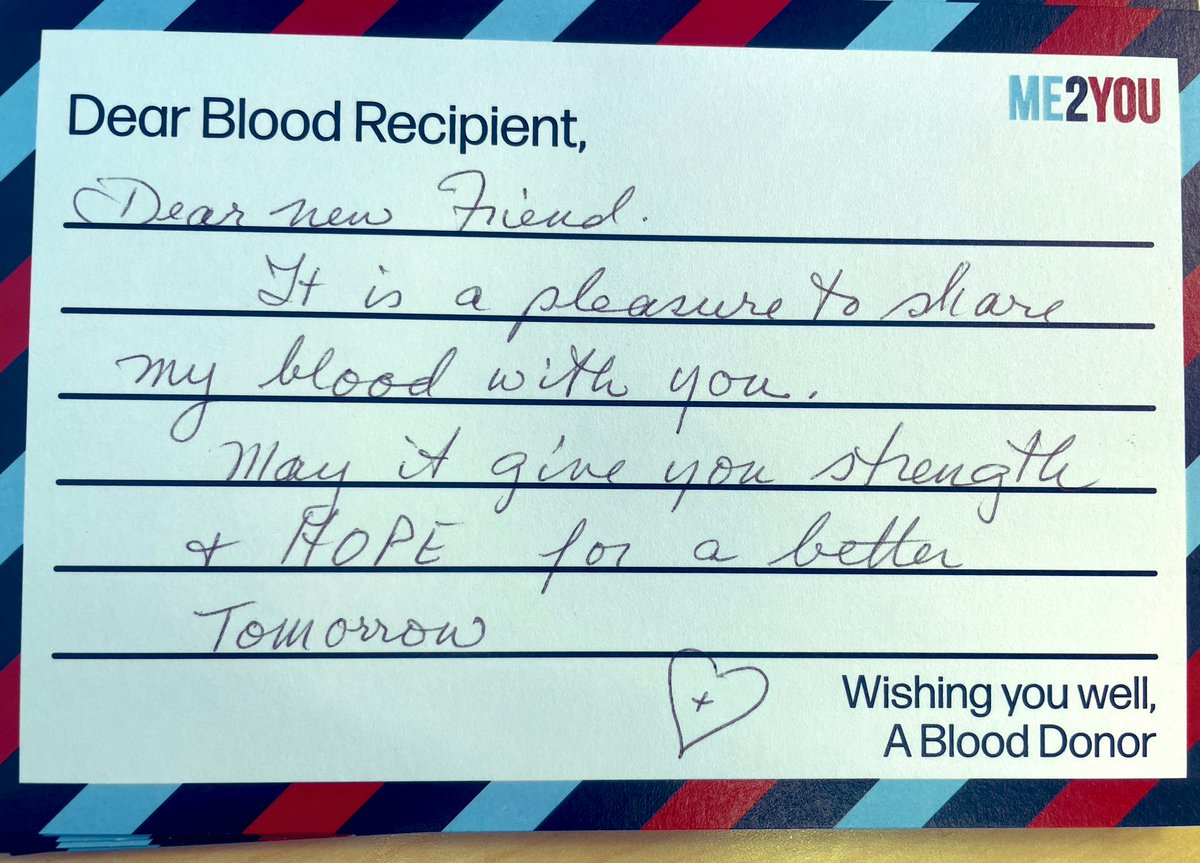 ME2YOU
Dear Blood Recipient,
Dear new Friend.
It is a pleasure to share
my blood with you.
May it give you strength
+ HOPE for a better
Tomorrow
+
Wishing you well,
A Blood Donor